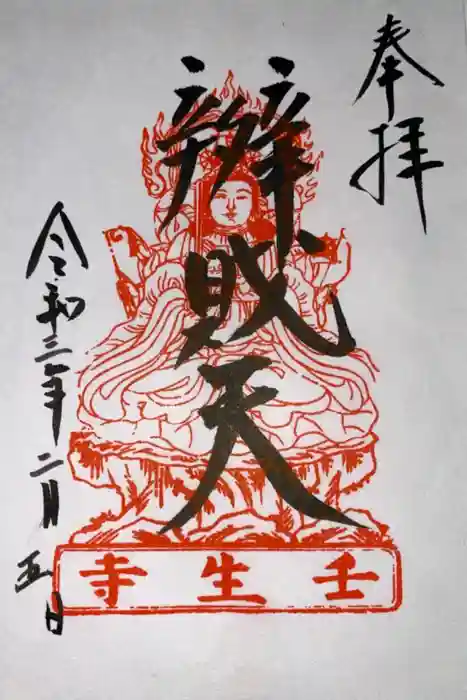 奉拝
辨戝天
令和三年二月五日
壬生寺